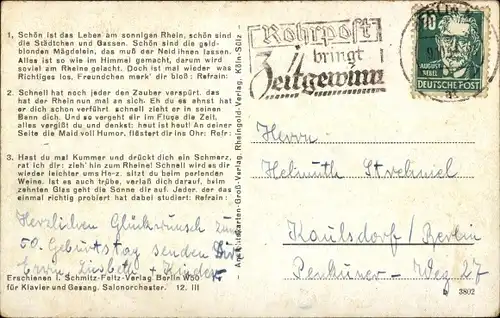 1, Schön ist das Leben am sonnigen Rhein, schön sind
die Städtchen und Gassen. Schön sind die gold-
blonden Mägdelein, das muß der Neid ihnen lassen.
Alles ist so wie im Himmel gemacht, darum wird
soviel am Rheine gelacht. Doch ist mal wieder was
Richtiges los, Freundchen merk' dir bloß: Refrain:
2. Schnell hat noch jeder den Zauber verspürt, das
hat der Rhein nun mal an sich. Eh du es ahnst hat
er dich schon verführt, schnell zieht er in seinen
Bann dich. Und so vergeht dir im Fluge die Zeit,
alles vergißt du und denkst: heut ist heut! An deiner
Seite die Maid voll Humor, flüstert dir ins Ohr: Refr:
3. Hast du mal Kummer und drückt dich ein Schmerz,
rat ich dir: zieh' hin zum Rheine! Schnell wird es dir
wieder leichter ums Herz, sitzt du beim perlenden
Weine. Ist es auch trübe, verlaß dich darauf, beim
zehnten Glas geht die Sonne dir auf. Jeder, der das
einmal richtig probiert hat dabei studiert: Refrain:
Herzlichen Glückwunsch zum
50. Geburtstag senden Dir
Erwin, Lisbeth + Kinder
Erschienen i. Schmitz-Feltz-Verlag Berlin W50
für Klavier und Gesang. Salonorchester. 12. III
Ansichtskarten-Groß-Verlag, Rheingold-Verlag, Köln-Sülz
Rohrpost
bringt
Zeitgewinn
10
AUGUST
BEBEL
DEUTSCHE POST
Herrn
Helmuth Strehmel
Kaulsdorf/Berlin
Penkuner-Weg 27
b 3802